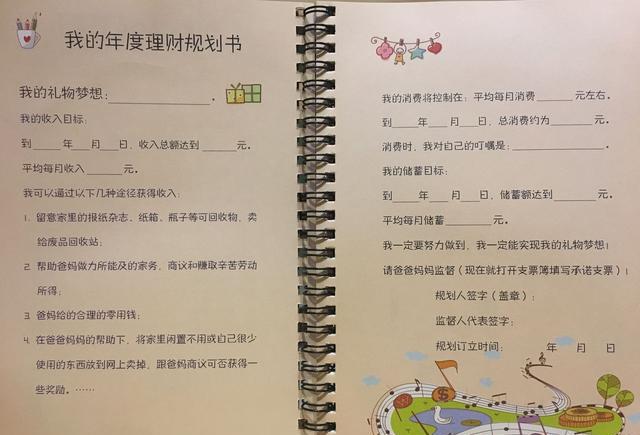 我的年度理财规划书
我的礼物梦想：____________。
我的收入目标：
到____年___月___日，收入总额达到_____元。
平均每月收入_____元。
我可以通过以下几种途径获得收入：
1. 留意家里的报纸杂志、纸箱、瓶子等可回收物，卖
给废品回收站；
2. 帮助爸妈做力所能及的家务，商议和赚取辛苦劳动
所得；
3. 爸妈给的合理的零用钱；
4. 在爸爸妈妈的帮助下，将家里闲置不用或自己很少
使用的东西放到网上卖掉，跟爸妈商议可否获得一
些奖励。……
我的消费将控制在：平均每月消费_____元左右。
到____年___月___日，总消费约为_____元。
消费时，我对自己的叮嘱是：____________。
我的储蓄目标：
到____年___月___日，储蓄额达到______元。
平均每月储蓄______元。
我一定要努力做到，我一定能实现我的礼物梦想！
请爸爸妈妈监督（现在就打开支票簿填写承诺支票）！
规划人签字（盖章）：
监督人代表签字：
规划订立时间： 年 月 日
$